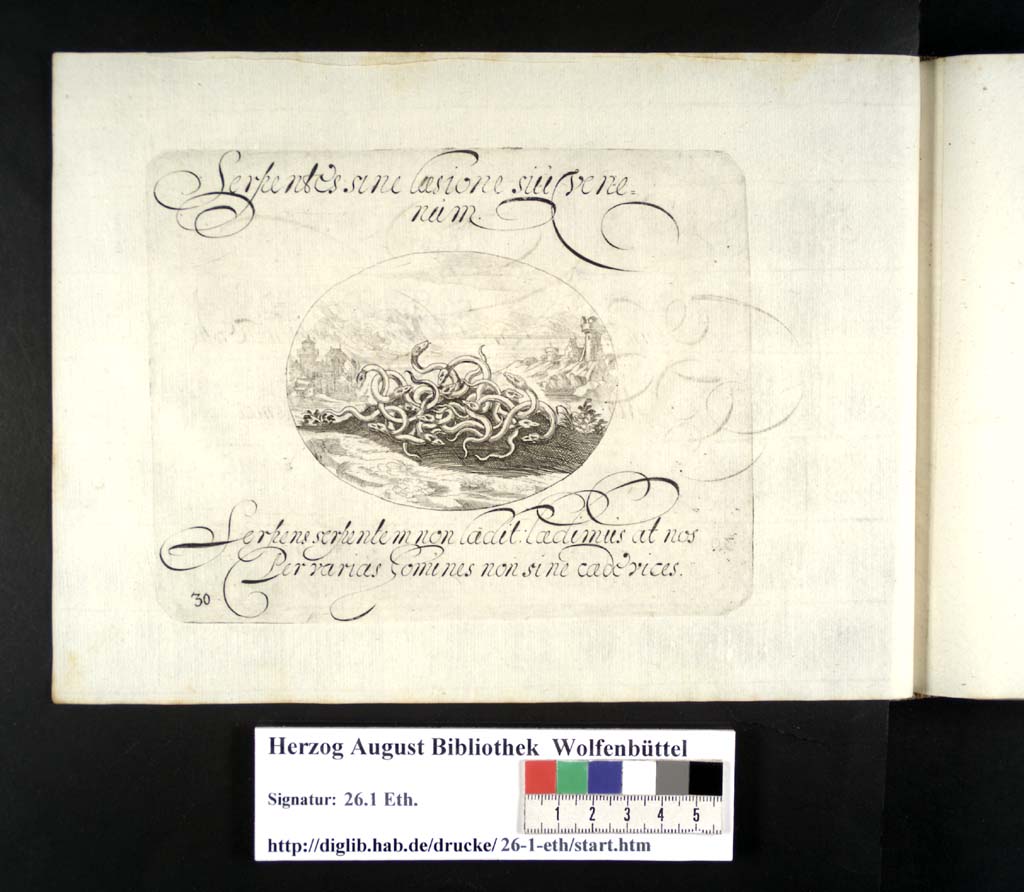 Serpentes sine læsione sui vene=
num.
Serpens serpentem non lædit: lædimus at nos
Per varias homines non sine cæde vices.
30
Herzog August Bibliothek Wolfenbüttel
Signatur: 26.1 Eth.
1 2 3 4 5
http://diglib.hab.de/drucke/ 26-1-eth/start.htm